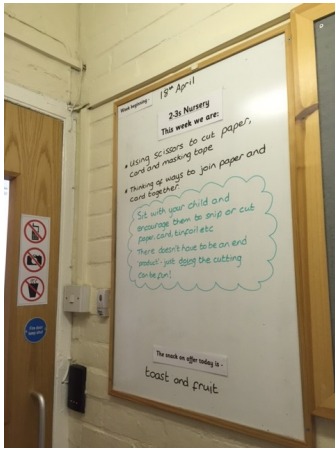 Week beginning -
18th April
2-3s Nursery
This week we are:
* Using scissors to cut paper,
card and masking tape
* Thinking of ways to join paper and
card together.
Sit with your child and
encourage them to snip or cut
paper, card, tinfoil etc
There doesn't have to be an end
'product' - just doing the cutting
can be fun!
The snack on offer today is -
toast and fruit